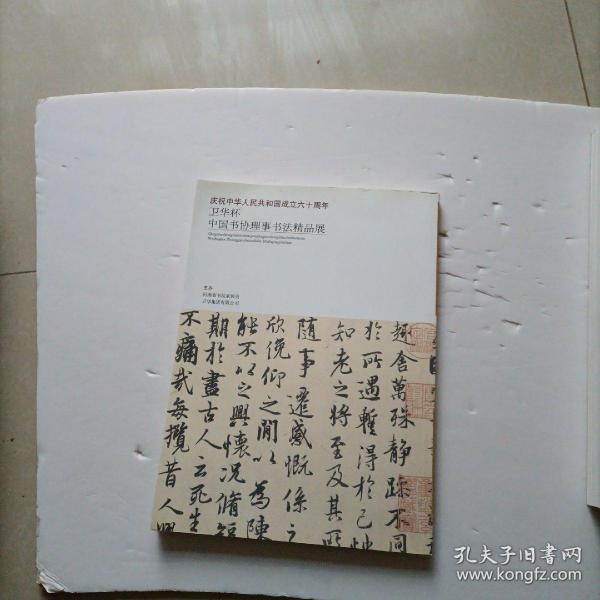 庆祝中华人民共和国成立六十周年
卫华杯
中国书协理事书法精品展
主办
河南省书法家协会
卫华集团有限公司
趣舍萬殊静踪不同
於所遇蹔得於己
知老之將至及其所
隨事遷感慨係之
欣俛仰之閒以為陳
能不以之興懷况脩短
期於盡古人云死生
不痛哉每攬昔人
孔夫子旧书网
www.kongfz.com